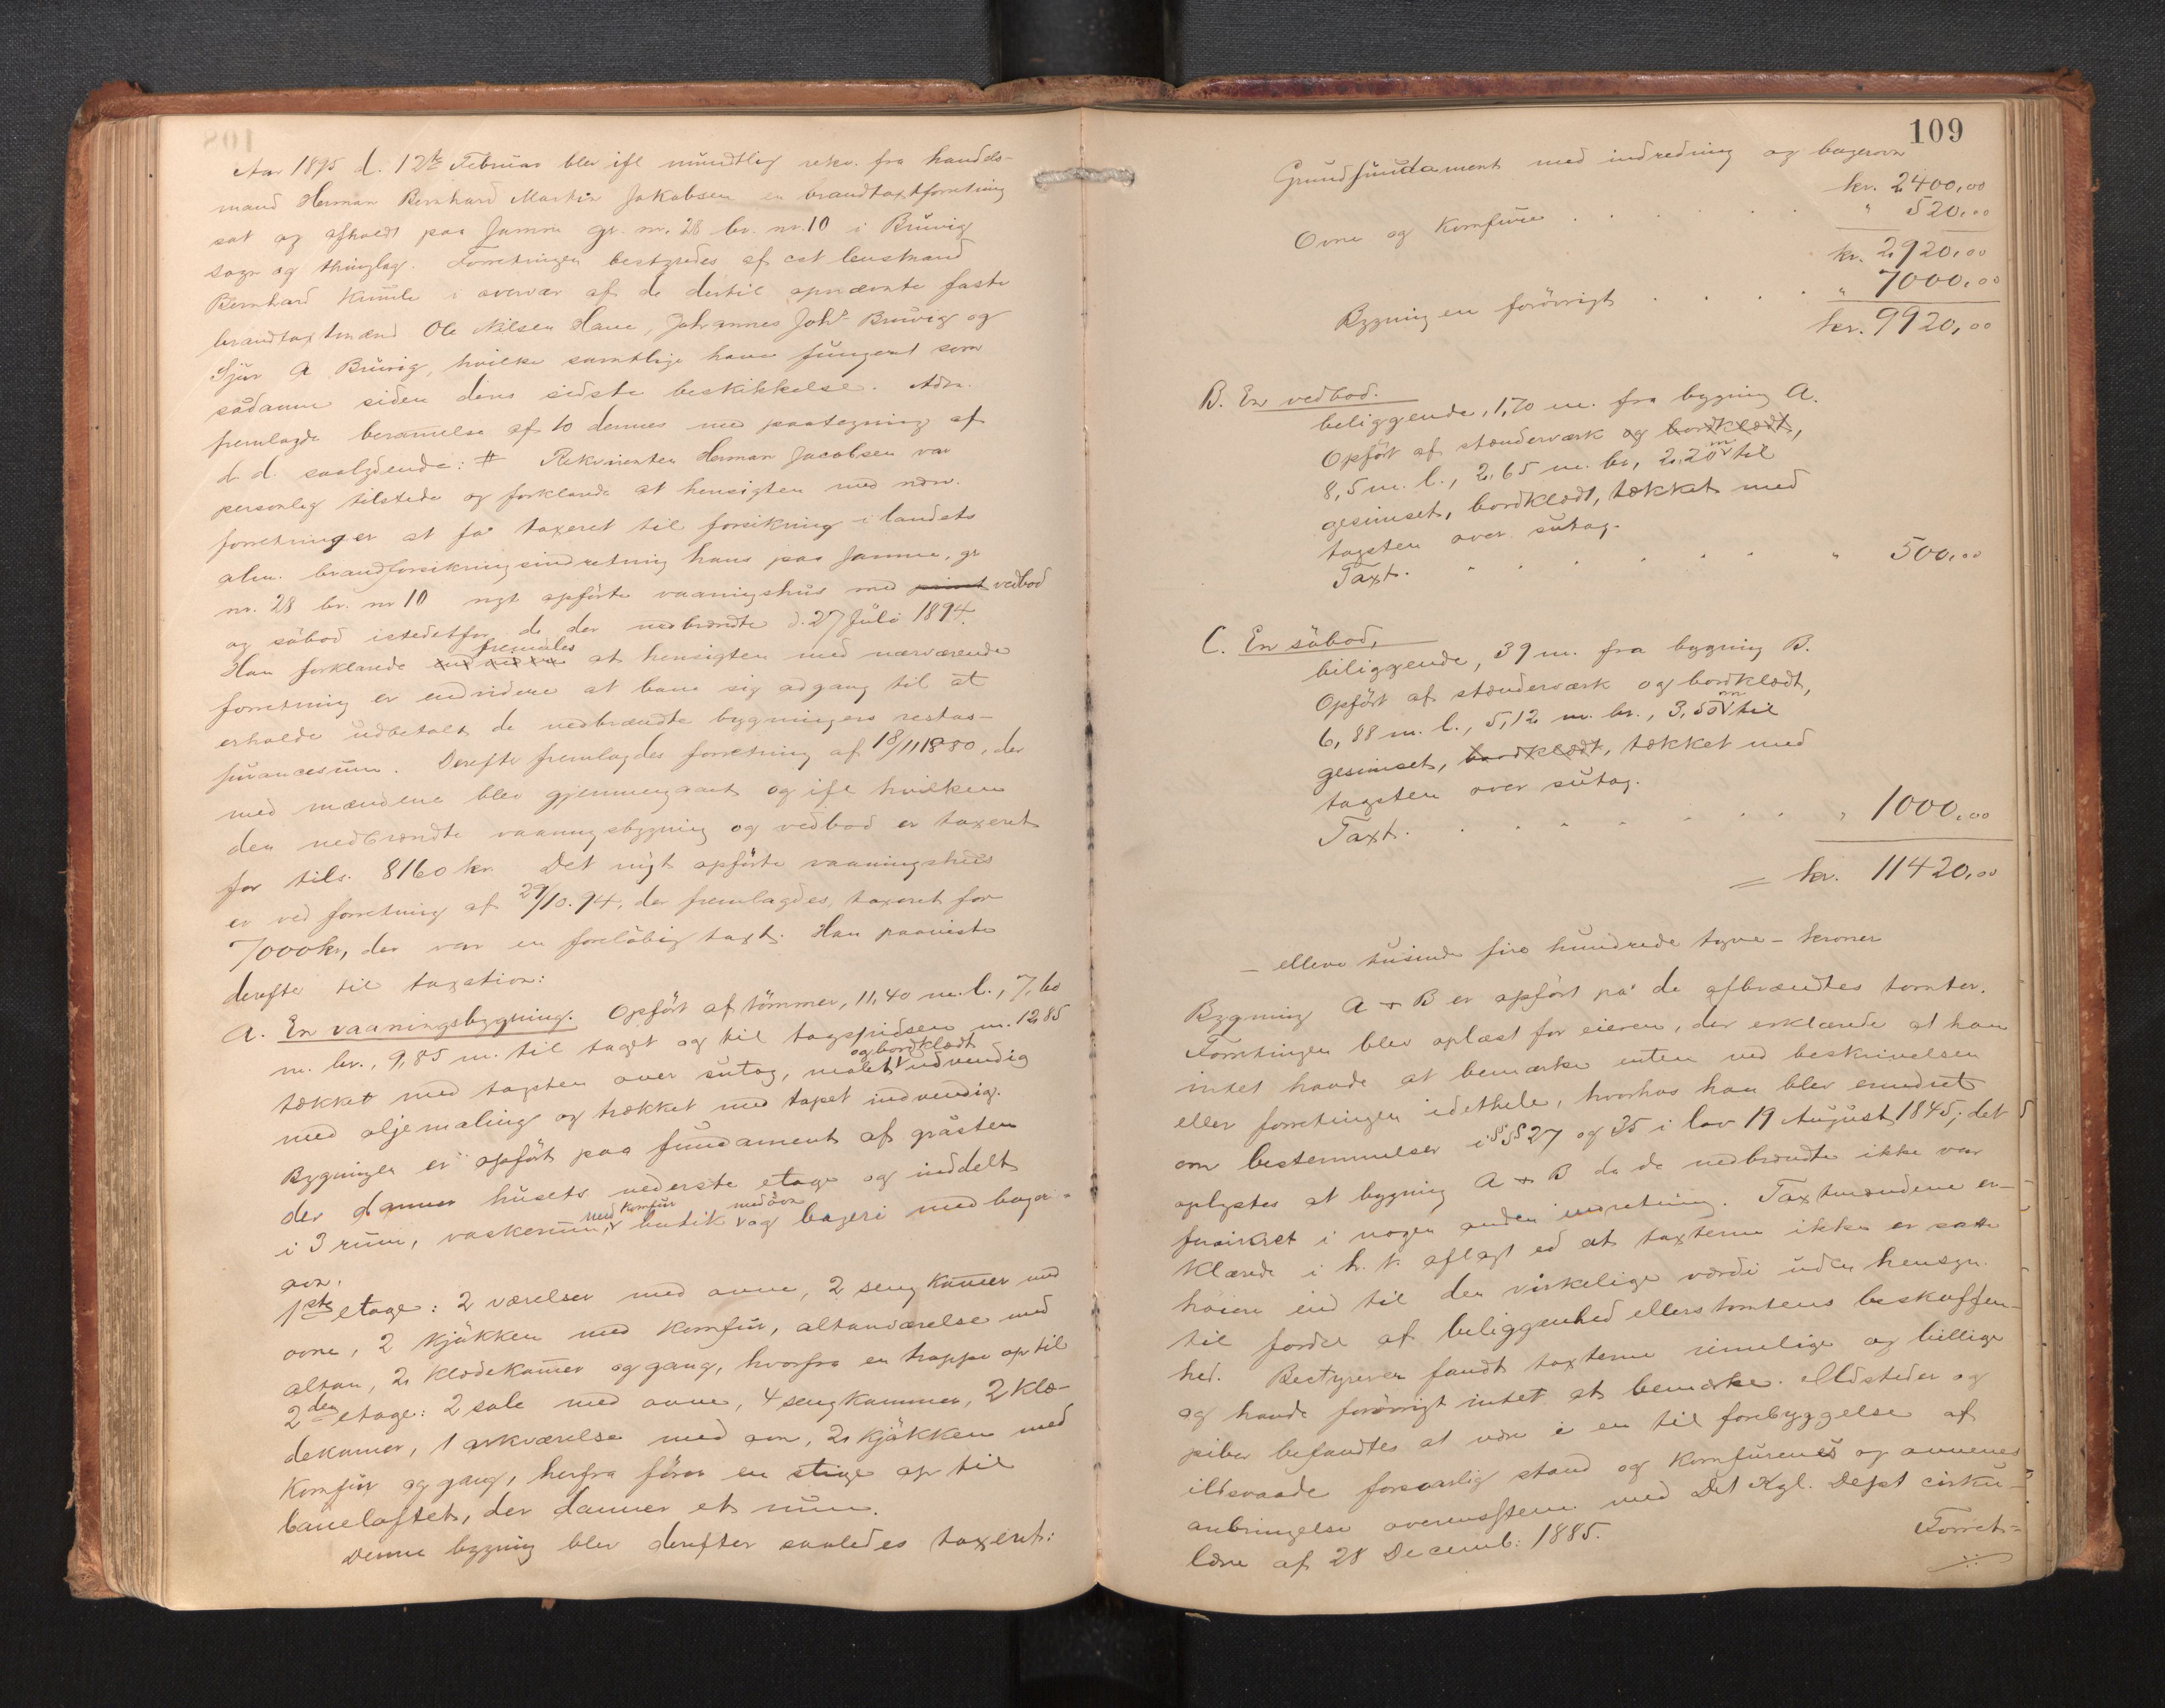 Aar 1895 d. 12te Februar blev ifl mundtlig rekv. fra handels-
mand Herman Bernhard Martin Jakobsen en brandtaxtforretning
sat og afholdt paa Jamne gr. nr. 28 br. nr. 10 i Bruvig
sogn og thinglag. Forretningen bestyredes af cst lensmand
Bernhard i overvær af de dertil opnævnte faste
brandtaxtmænd Ole Nilsen Hane, Johannes Johs Bruvig og
Sjur A Bruvig, hvilke samtlige have fungeret som
sådanne siden deres sidste beskikkelse. Adm.
fremlagde berammelse af 10 dennes med paategning af
d. d. saalydende: # Rekvirenten Herman Jacobsen var
personlig tilstede og forklarede at hensigten med nærv.
forretning er at få taxeret til forsikring i landets
alm. brandforsikringsindretning hans paa Jamne, gr
nr. 28 br. nr 10 nyt opførte vaaningshus med vedbod
og søbod istedetfor de der nedbrændte d. 27 Juli 1894.
fremdeles
Han forklarede at hensigten med nærværende
forretning er endvidere at bane sig adgang til at
erholde udbetalt de nedbrændte bygningers restas-
surancesum. Derefter fremlagdes forretning af 18/11 1880, der
med mændene blev gjennemgaaet og ifl hvilken
den nedbrændte vaaningsbygning og vedbod er taxeret
for tils. 8160 kr. Det nyt opførte vaaningshus
er ved forretning af 29/10. 94, der fremlagdes, taxeret for
7000 kr, der var en foreløbig taxt. Han paaviste
derefter til taxation:
A. En vaaningsbygning. Opført af tømmer, 11,40 m. l., 7,60
m. br., 9,85 m. til taget og til tagspidsen m. 12,85
og bordklædt
tækket med tagsten over sutag, malet udvendig
med oljemaling og trækket med tapet indvendig.
Bygningen er opført paa fundament af gråsten
der danner husets nederste etage og inddelt
med komfur med ovn
i 3 rum, vaskerum, butik og bageri med bager-
ovn.
1ste etage: 2 værelser med ovne, 2 sengkamer med
ovne, 2 kjøkken med komfur, altanværelse med
altan, 2 klædekamer og gang, hvorfra en trappe op til
2den etage: 2 sale med ovne, 4 sengkammer, 2 klæ-
dekamer, 1 arkværelse med ovn, 2 kjøkken med
komfur og gang, herfra fører en stige op til
baneloftet, der danner et rum.
Denne bygning blev derefter saaledes taxeret:
109
Grundfundament med indredning og bagerovn
kr. 2400,00
Ovne og komfure . . . . . " 520,00
kr. 2920,00
Bygningen forøvrigt . . . . " 7000,00
kr. 9920,00
B. En vedbod.
beliggende, 1,70 m. fra bygning A.
Opført af stænderværk og bordklædt,
8,5 m. l., 2,65 m. br, 2,20 m til
gesimset, bordklædt, tækket med
tagsten over sutag.
Taxt. . . . . . . " 500,00
C. En søbod,
biliggende, 39 m. fra bygning B.
Opført af stænderværk og bordklædt,
6,88 m. l., 5,12 m. br., 3,50 m til
gesimset, bordklædt, tækket med
tagsten over sutag.
Taxt. . . . . . . . " 1000,00
= kr. 11420,00
- elleve tusinde fire hundrede tyve - kroner
Bygning A & B er opført på de afbrændtes tomter.
Forretningen blev oplæst for eieren, der erklærede at han
intet havde at bemærke enten ved beskrivelsen
eller forretningen idethele, hvorhos han blev erindret
om bestemmelser i §§ 27 og 35 i lov 19 August 1845; det
oplystes at bygning A & B da de nedbrændte ikke var
forsikret i nogen anden indretning. Taxtmændene er-
klærede i h. t. aflagt ed at taxterne ikke er satte
høiere end til den virkelige værdi uden hensyn
til fordel af beliggenhed eller tomtens beskaffen-
hed. Bestyreren fandt taxterne rimelige og billige
og havde forøvrigt intet at bemærke. Ildsteder og
piber befandtes at være i en til forebyggelse af
ildsvaade forsvarlig stand og komfurenes og ovnenes
anbringelse overensstem. med Det Kgl. Depst cirku-
lære af 28 Decemb: 1885. Forret-